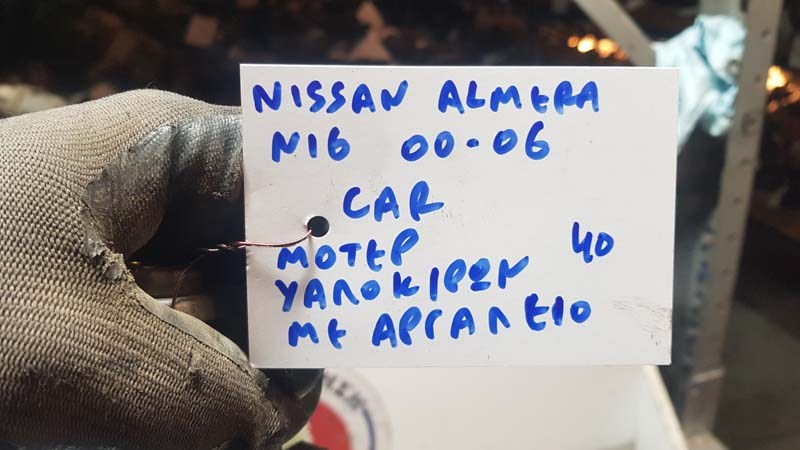 NISSAN ALMERA
N16 00-06
CAR
ΜΟΤΕΡ 40
ΥΑΛΟΚΙΡΩΝ
ΜΕ ΑΡΓΑΛΕΙΟ